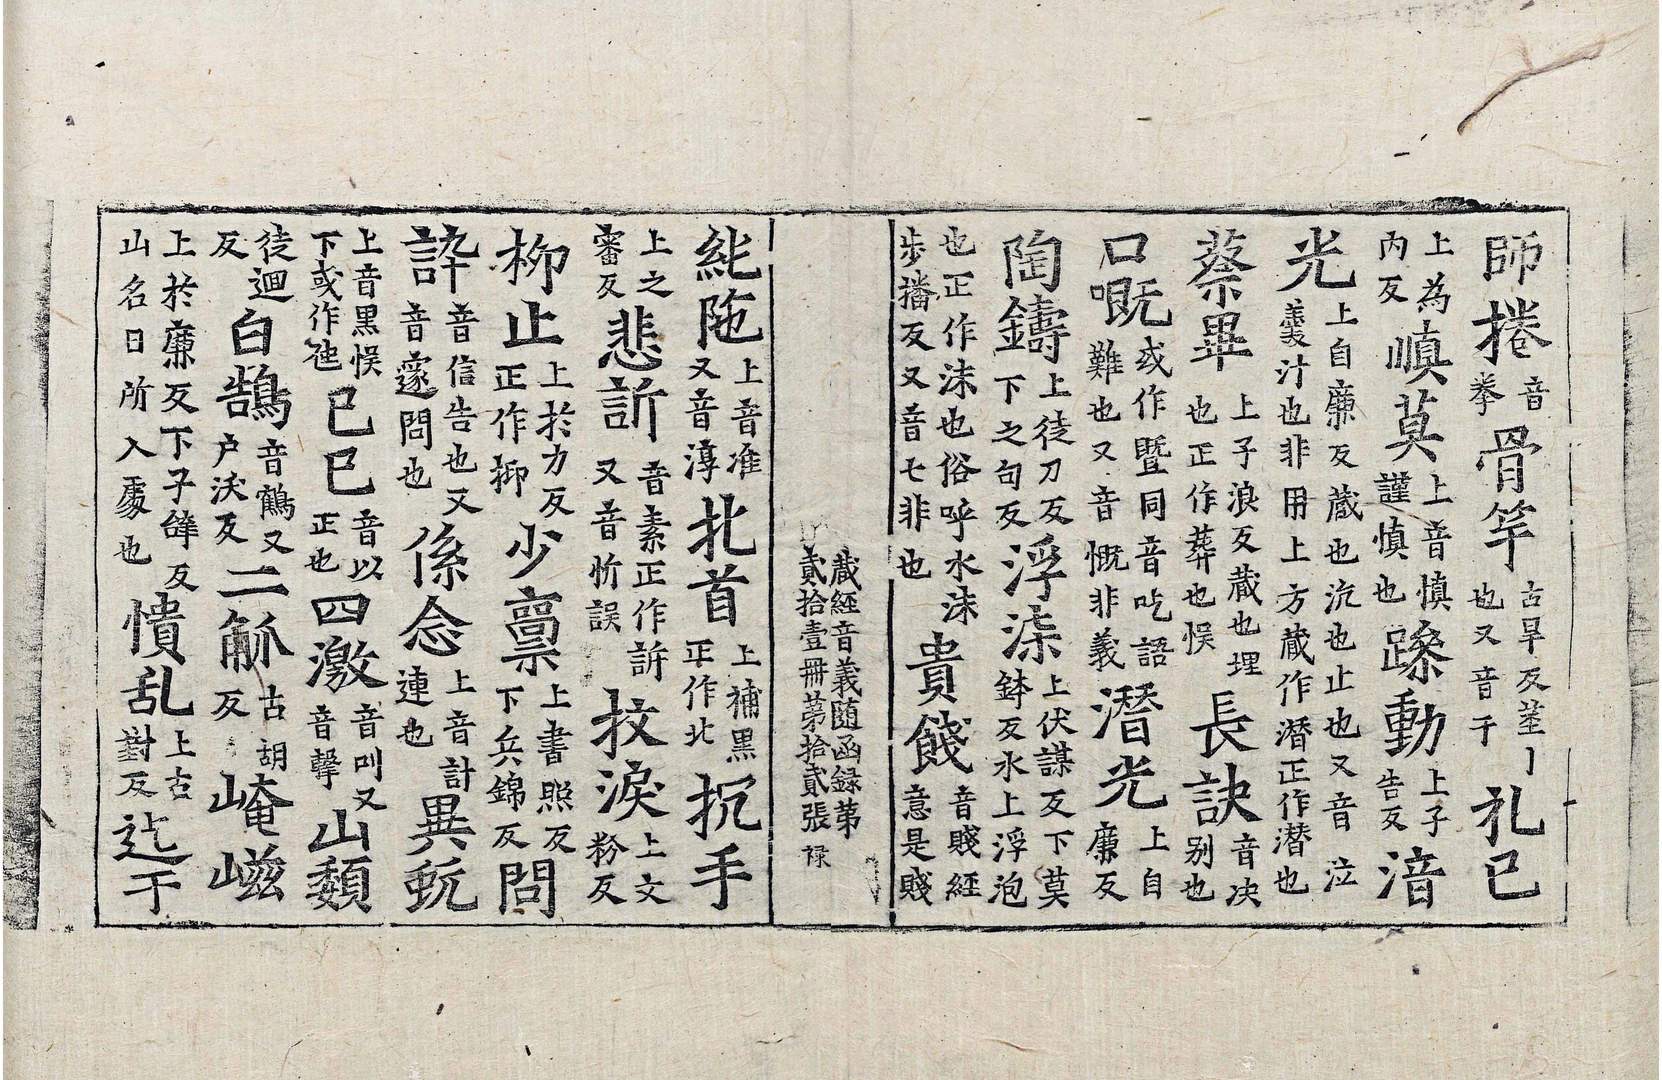 師捲音拳骨竿古旱反莖丨也又音干礼已
上為内反慎莫上音慎謹慎也躁動上子告反湆
光上自廉反蔵也沉也止也又音泣羹汁也非用上方蔵作潜正作潜也
蔡畢上子浪反蔵也埋也正作葬也悮長訣音决别也
口嘅或作暨同音吃語難也又音慨非義潛光上自廉反
陶鑄上徒刀反下之句反浮㳠上伏謀反下莫鉢反水上浮泡
也正作沫也俗呼水沫步播反又音七非也貴餞音賤經意是賤
蔵經音義随函録苐
貳拾壹冊苐拾貳張 禄
紪陁上音准又音淳北首上補黒正作北抧手
上之審反悲訢音素正作訴又音忻誤抆淚上文粉反
栁止上於力反正作抑少禀上書照反下兵錦反問
訐音信告也又音邃問也係念上音計連也異䖐
上音黒悮下或作虵已巳音以正也四激音叫又音擊山頽
徒迴反白鵠音鶴又户沃反二觚古胡反崦嵫
上於廉反下子雌反山名日所入處也憒乱上古對反迄于